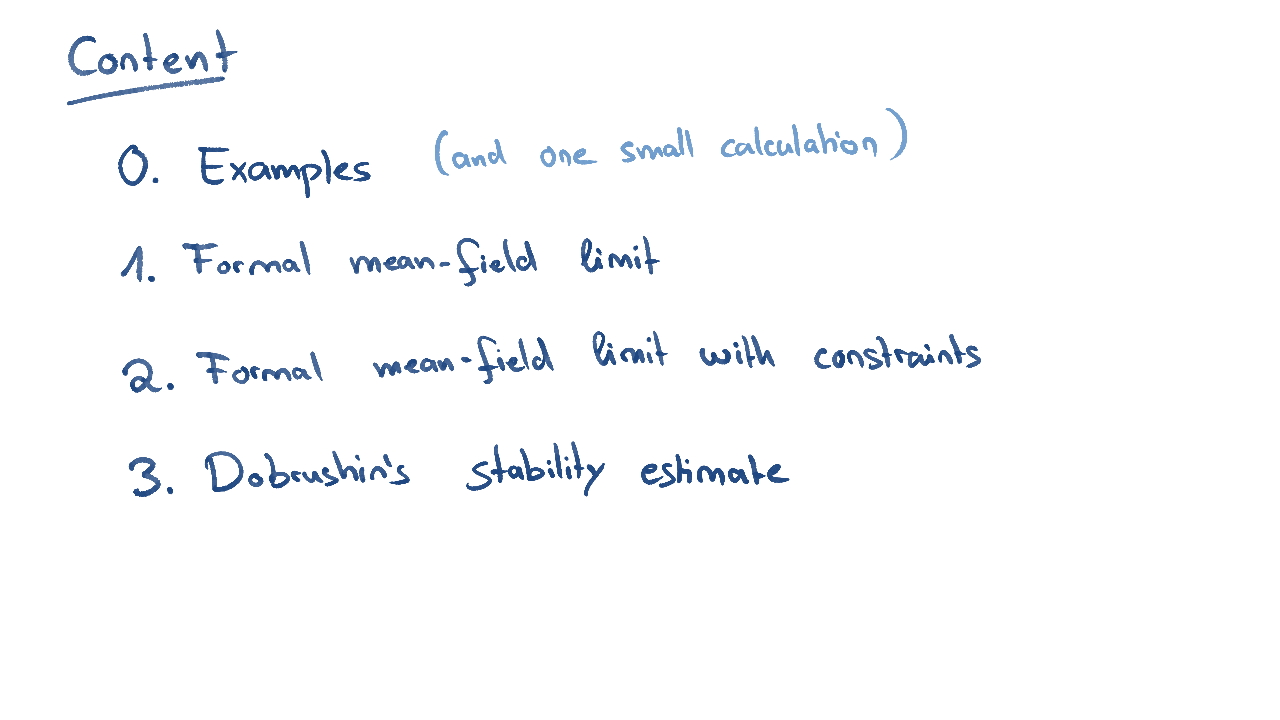 Content
0. Examples (and one small calculation)
1. Formal mean-field limit
2. Formal mean-field limit with constraints
3. Dobrushin's stability estimate